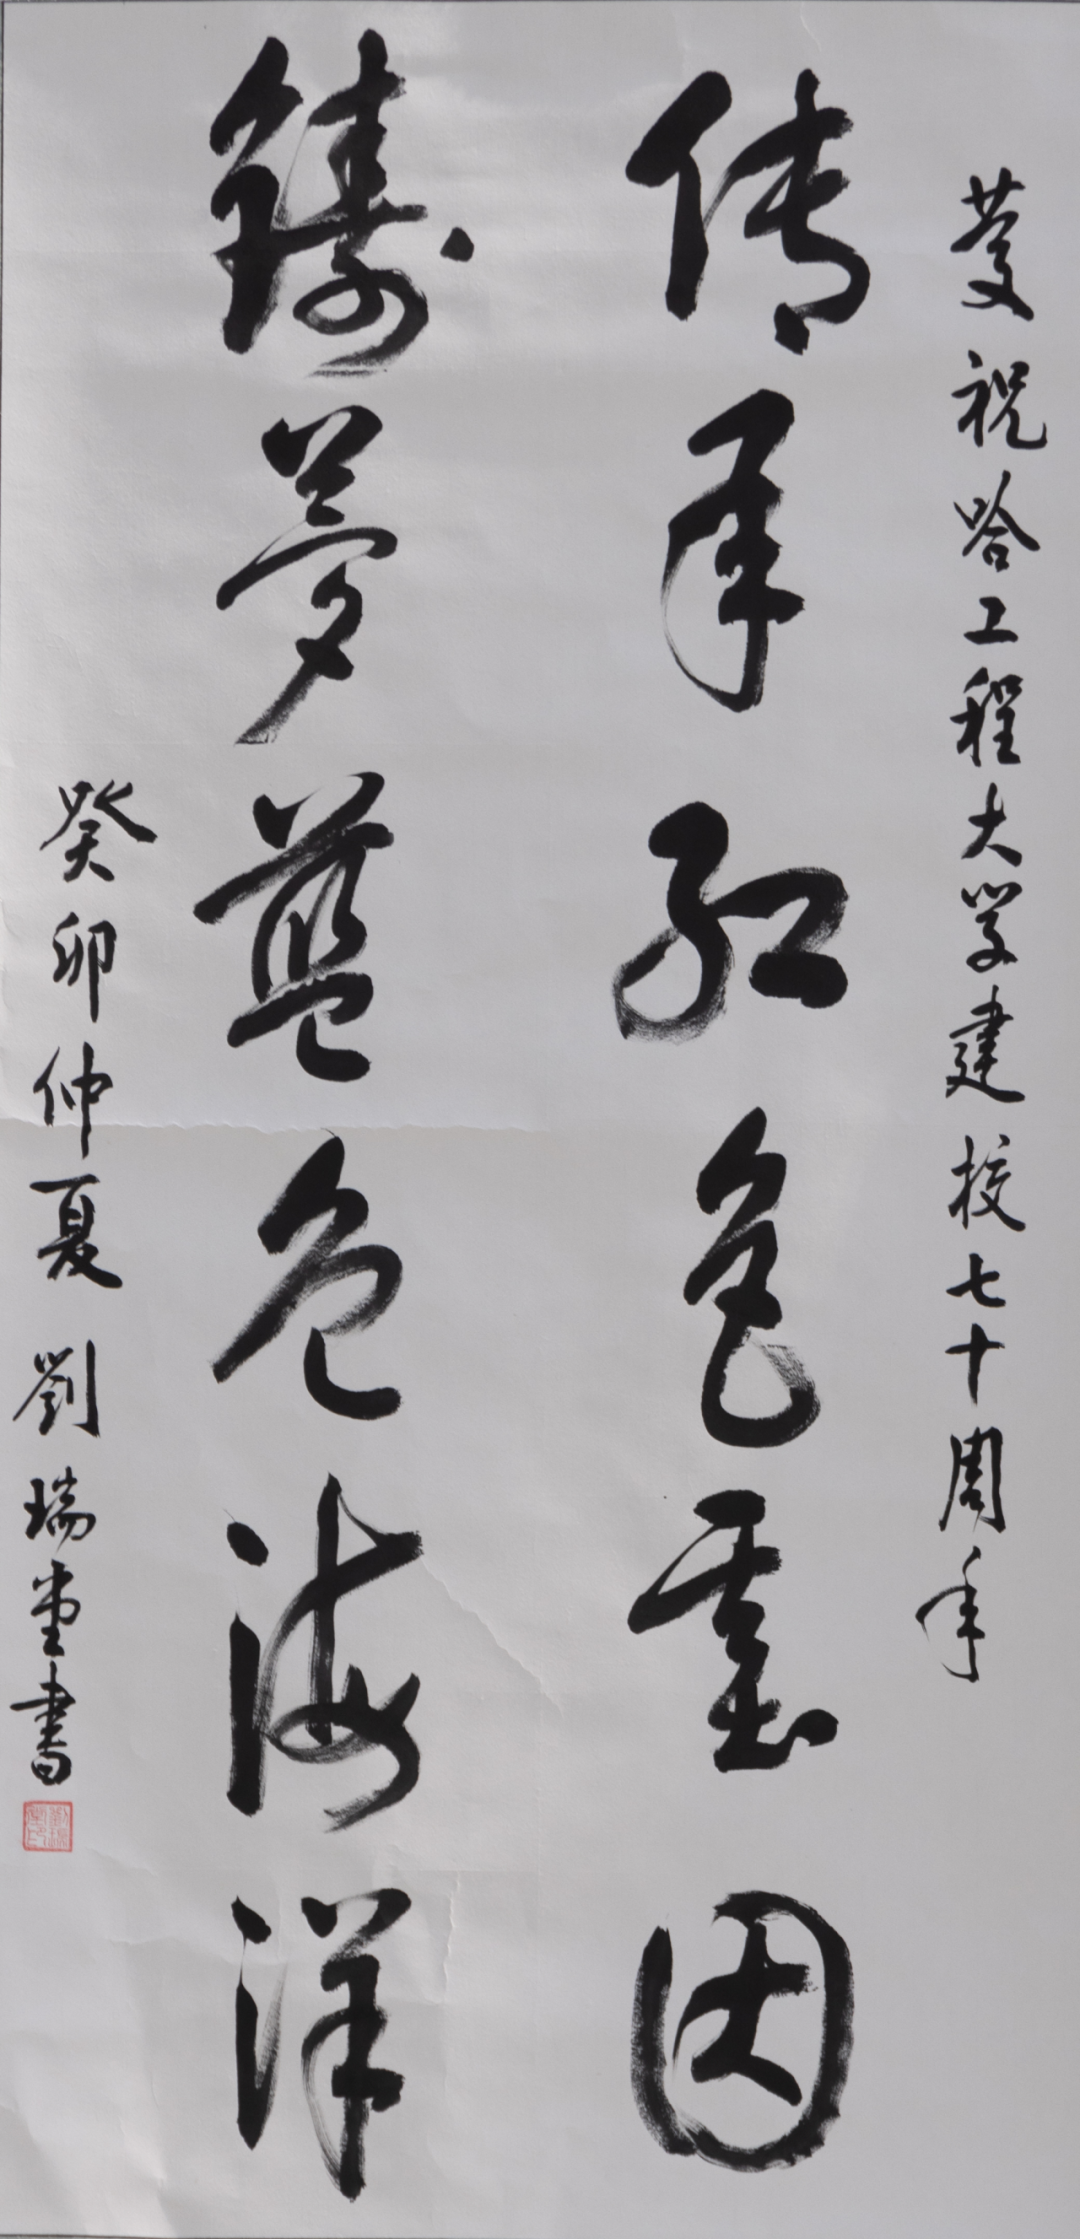 慶祝哈工程大学建校七十周年
传承红色基因
鑄夢藍色海洋
癸卯仲夏 劉瑞堂書